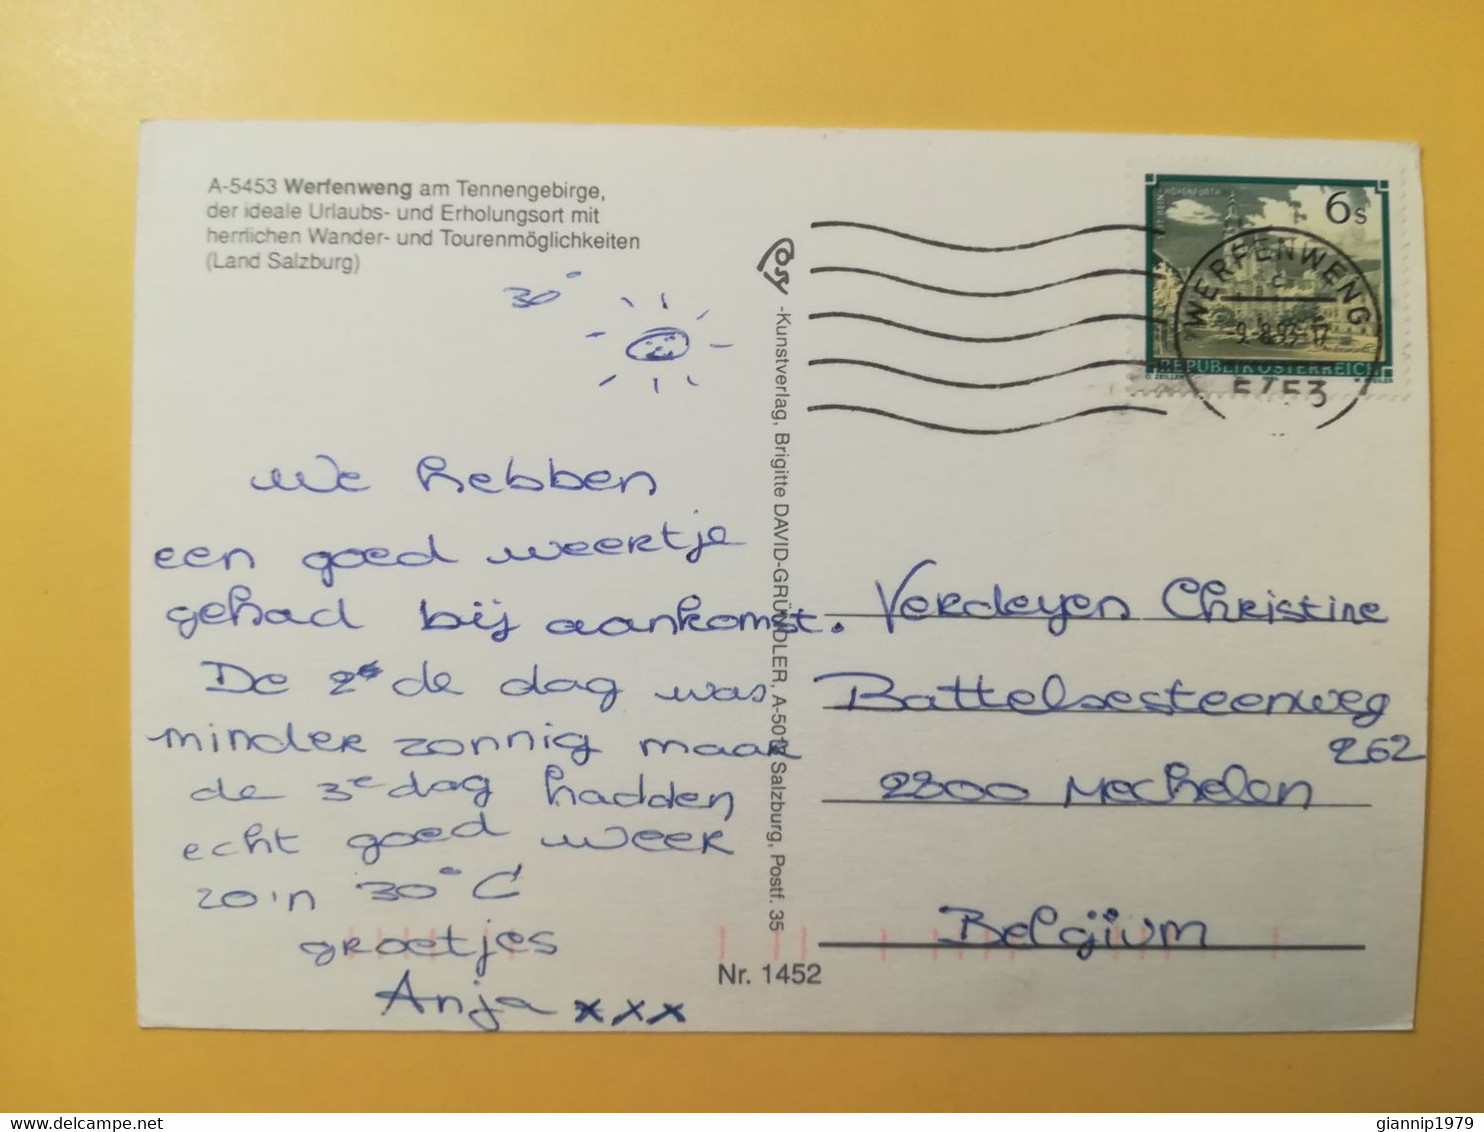 A-5453 Werfenweng am Tennengebirge,
der ideale Urlaubs- und Erholungsort mit
herrlichen Wander- und Tourenmöglichkeiten
(Land Salzburg)
30°
We hebben
een goed weertje
gehad bij aankomst.
De 2e de dag was
minder zonnig maar
de 3e dag hadden
echt goed weer
zo'n 30°C
groetjes
Anja xxx
Cosy -Kunstverlag, Brigitte DAVID-GRÜNDLER, Salzburg, Postf. 35
Nr. 1452
6s
REPUBLIK ÖSTERREICH
WERFENWENG
-9.-8.93-17
5453
Verdeyen Christine
Battelsesteenweg
262
2800 Mechelen
Belgium
giannip1979